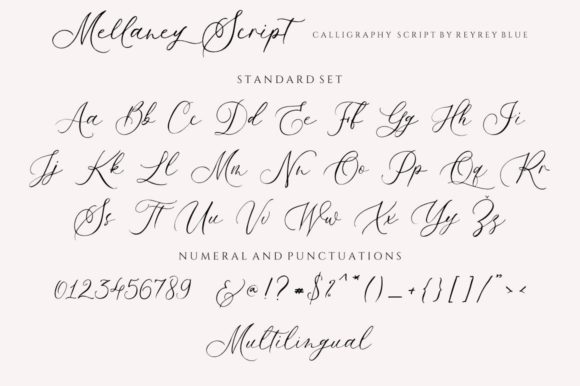 Mellaney Script CALLIGRAPHY SCRIPT BY REYREY BLUE
STANDARD SET
Aa Bb Cc Dd Ee Ff Gg Hh Ii
Jj Kk Ll Mm Nn Oo Pp Qq Rr
Ss Tt Uu Vv Ww Xx Yy Žz
NUMERAL AND PUNCTUATIONS
0123456789 &@!?*$%^*()_+{}[]/"><
Multilingual